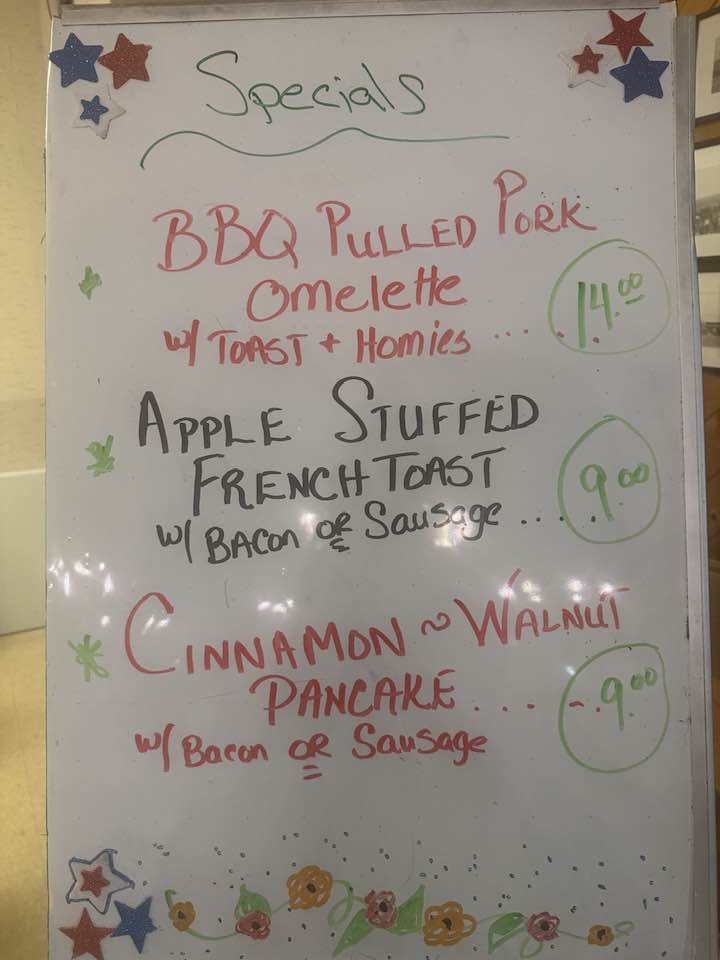 Specials
BBQ PULLED PORK
Omelette
w/ TOAST + Homies .... 14.00
APPLE STUFFED
FRENCH TOAST
w/ BACON OR Sausage .... 9.00
CINNAMON ~ WALNUT
PANCAKE .... - . 9.00
w/ Bacon OR Sausage